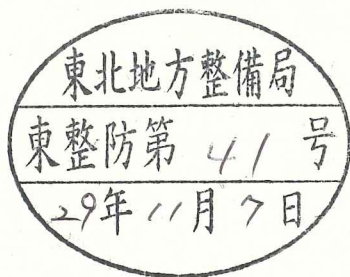 東北地方整備局
東整防第 41 号
29年 11月 7日